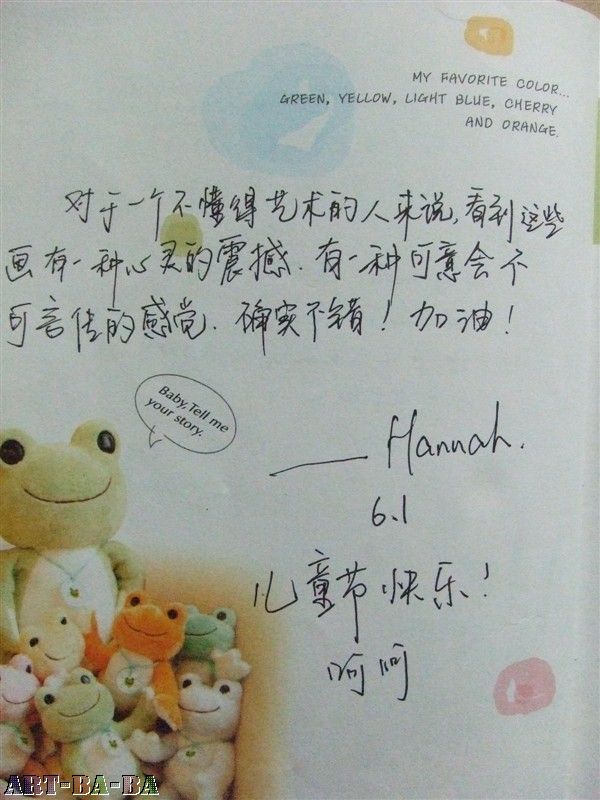 MY FAVORITE COLOR...
GREEN, YELLOW, LIGHT BLUE, CHERRY
AND ORANGE.
对于一个不懂得艺术的人来说,看到这些
画有一种心灵的震撼.有一种可意会不
可言传的感觉.确实不错!加油!
Baby, Tell me
your story.
—— Hannah.
6.1
儿童节快乐!
呵呵
ART-BA-BA